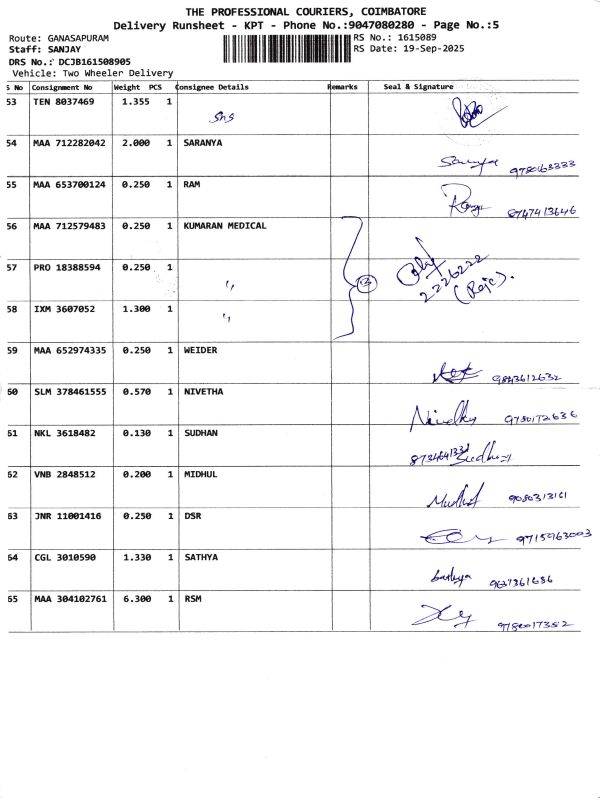 THE PROFESSIONAL COURIERS, COIMBATORE
Delivery Runsheet - KPT - Phone No.:9047080280 - Page No.:5
Route: GANASAPURAM RS No.: 1615089
Staff: SANJAY RS Date: 19-Sep-2025
DRS No.: DCJB161508905
Vehicle: Two Wheeler Delivery
S No Consignment No Weight PCS Consignee Details Remarks Seal & Signature
53 TEN 8037469 1.355 1 Shs
54 MAA 712282042 2.000 1 SARANYA
Saranya
55 MAA 653700124 0.250 1 RAM
8747413646
56 MAA 712579483 0.250 1 KUMARAN MEDICAL
57 PRO 18388594 0.250 1 ,,
3
2226222
58 IXM 3607052 1.300 1 ,,
59 MAA 652974335 0.250 1 WEIDER
9843612632
60 SLM 378461555 0.570 1 NIVETHA
9780172636
61 NKL 3618482 0.130 1 SUDHAN
62 VNB 2848512 0.200 1 MIDHUL
9080313161
63 JNR 11001416 0.250 1 DSR
9715963003
64 CGL 3010590 1.330 1 SATHYA
Sathya 9637361686
65 MAA 304102761 6.300 1 RSM